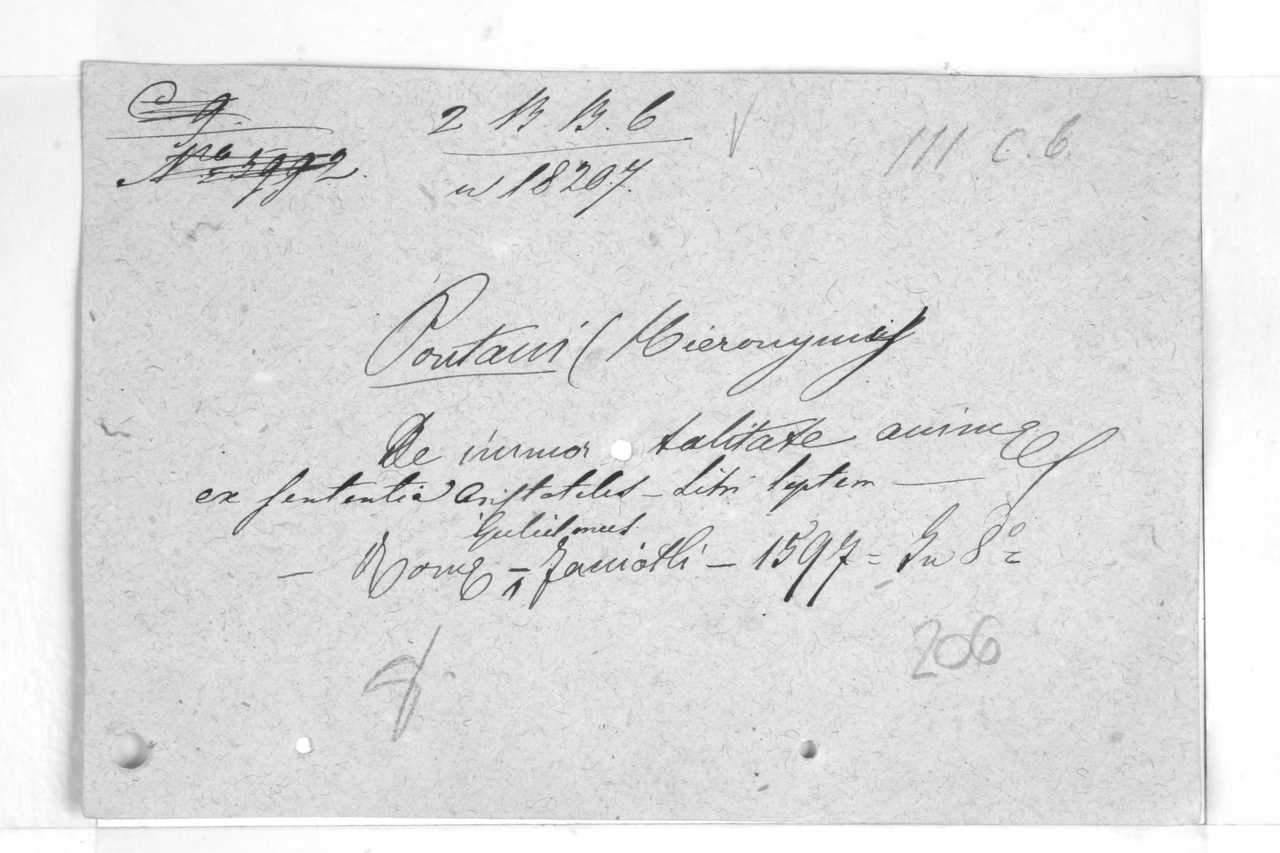 C 9.
Nro 5992.
2 B. B. 6
n 18207.
111 C. 6.
Pontani (Hieronymi)
De immortalitate animæ
ex sententia Aristotelis – Libri septem –
Gulielmus
– Romæ – Facciotti – 1597 = In 8º =
206